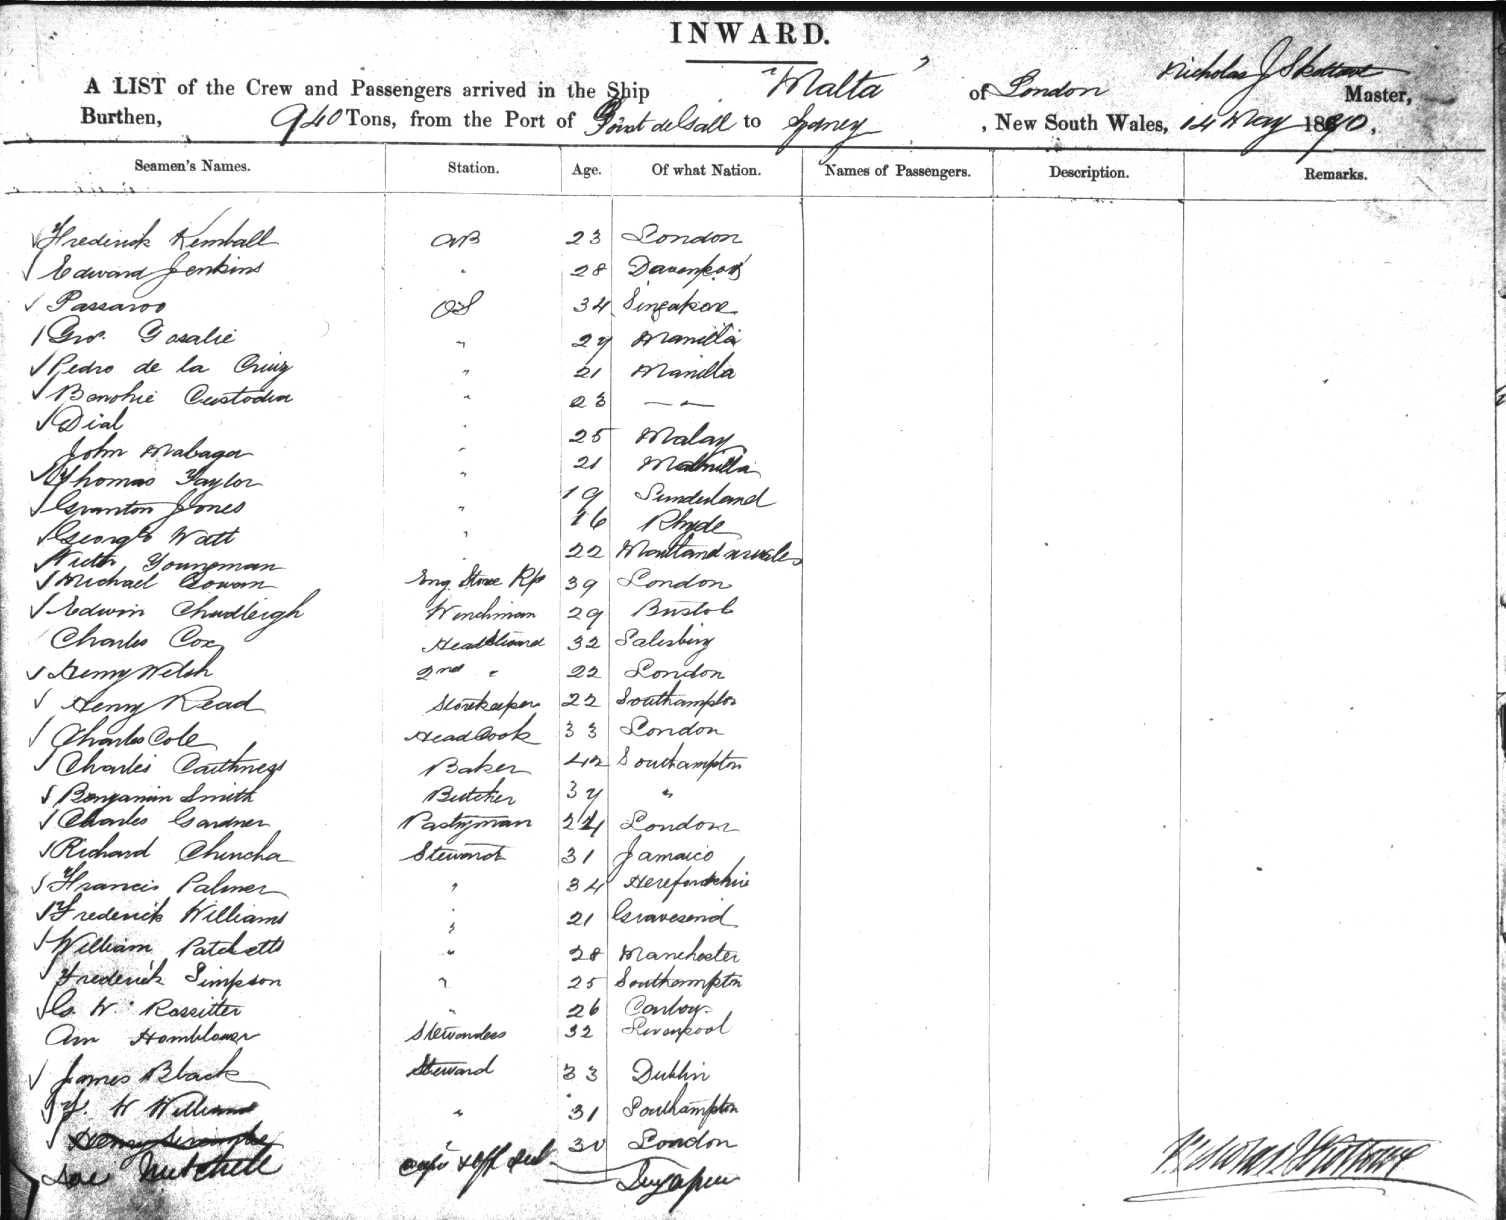 INWARD.
A LIST of the Crew and Passengers arrived in the Ship "Malta" of London Nicholas J Master,
Burthen, 940 Tons, from the Port of Point de Gall to Sydney, New South Wales, 14 May 1870,
Seamen's Names. Station. Age. Of what Nation. Names of Passengers. Description. Remarks.
Frederick Kemball AB 23 London
Edward Jenkins " 28 Davenport
Passaroo OS 34 Singapore
Gosalie " 27 Manilla
Pedro de la Cruiz " 21 Manilla
Custodia " 23 — " —
Dial " 25 Malay
John Mabaga " 21 Manilla
Thomas Taylor " 19 Sunderland
Granton Jones " 16 Rhyde
George Watt " 22 Maitland
Youngman
Michael Cowan Eng Store Kpr 39 London
Edwin Chudleigh Winchman 29 Bristol
Charles Cox Head Steward 32 Salisbury
Henry Welsh 2nd " 22 London
Henry Read Storekeeper 22 Southampton
Charles Cole Head Cook 33 London
Charles Caithness Baker 42 Southampton
Benjamin Smith Butcher 37 "
Charles Gardner Pastryman 24 London
Richard Chincha Steward 31 Jamaica
Francis Palmer " 34 Herefordshire
Frederick Williams " 21 Gravesend
William Patchett " 28 Manchester
Frederick Simpson " 25 Southampton
W. Rossitter " 26
Ann Hornblower Stewardess 32 Liverpool
James Black Steward 33 Dublin
W Williams " 31 Southampton
Henry " 30 London
Mitchell